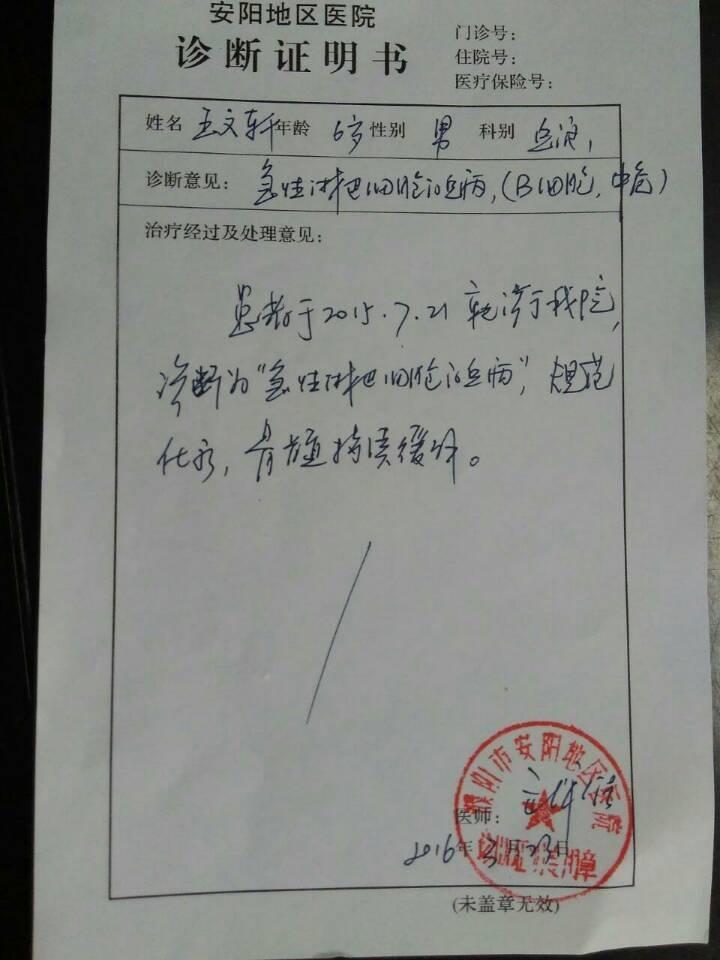 安阳地区医院
诊断证明书
门诊号：
住院号：
医疗保险号：
姓名 王文轩 年龄 6岁 性别 男 科别 血液，
诊断意见： 急性淋巴细胞白血病，（B细胞，中危）
治疗经过及处理意见：
患者于2015.7.21 就诊于我院，
诊断为“急性淋巴细胞白血病”，规范
化疗，骨髓持续缓解。
濮阳市安阳地区医院
医师：
2016年3月23日
(未盖章无效)